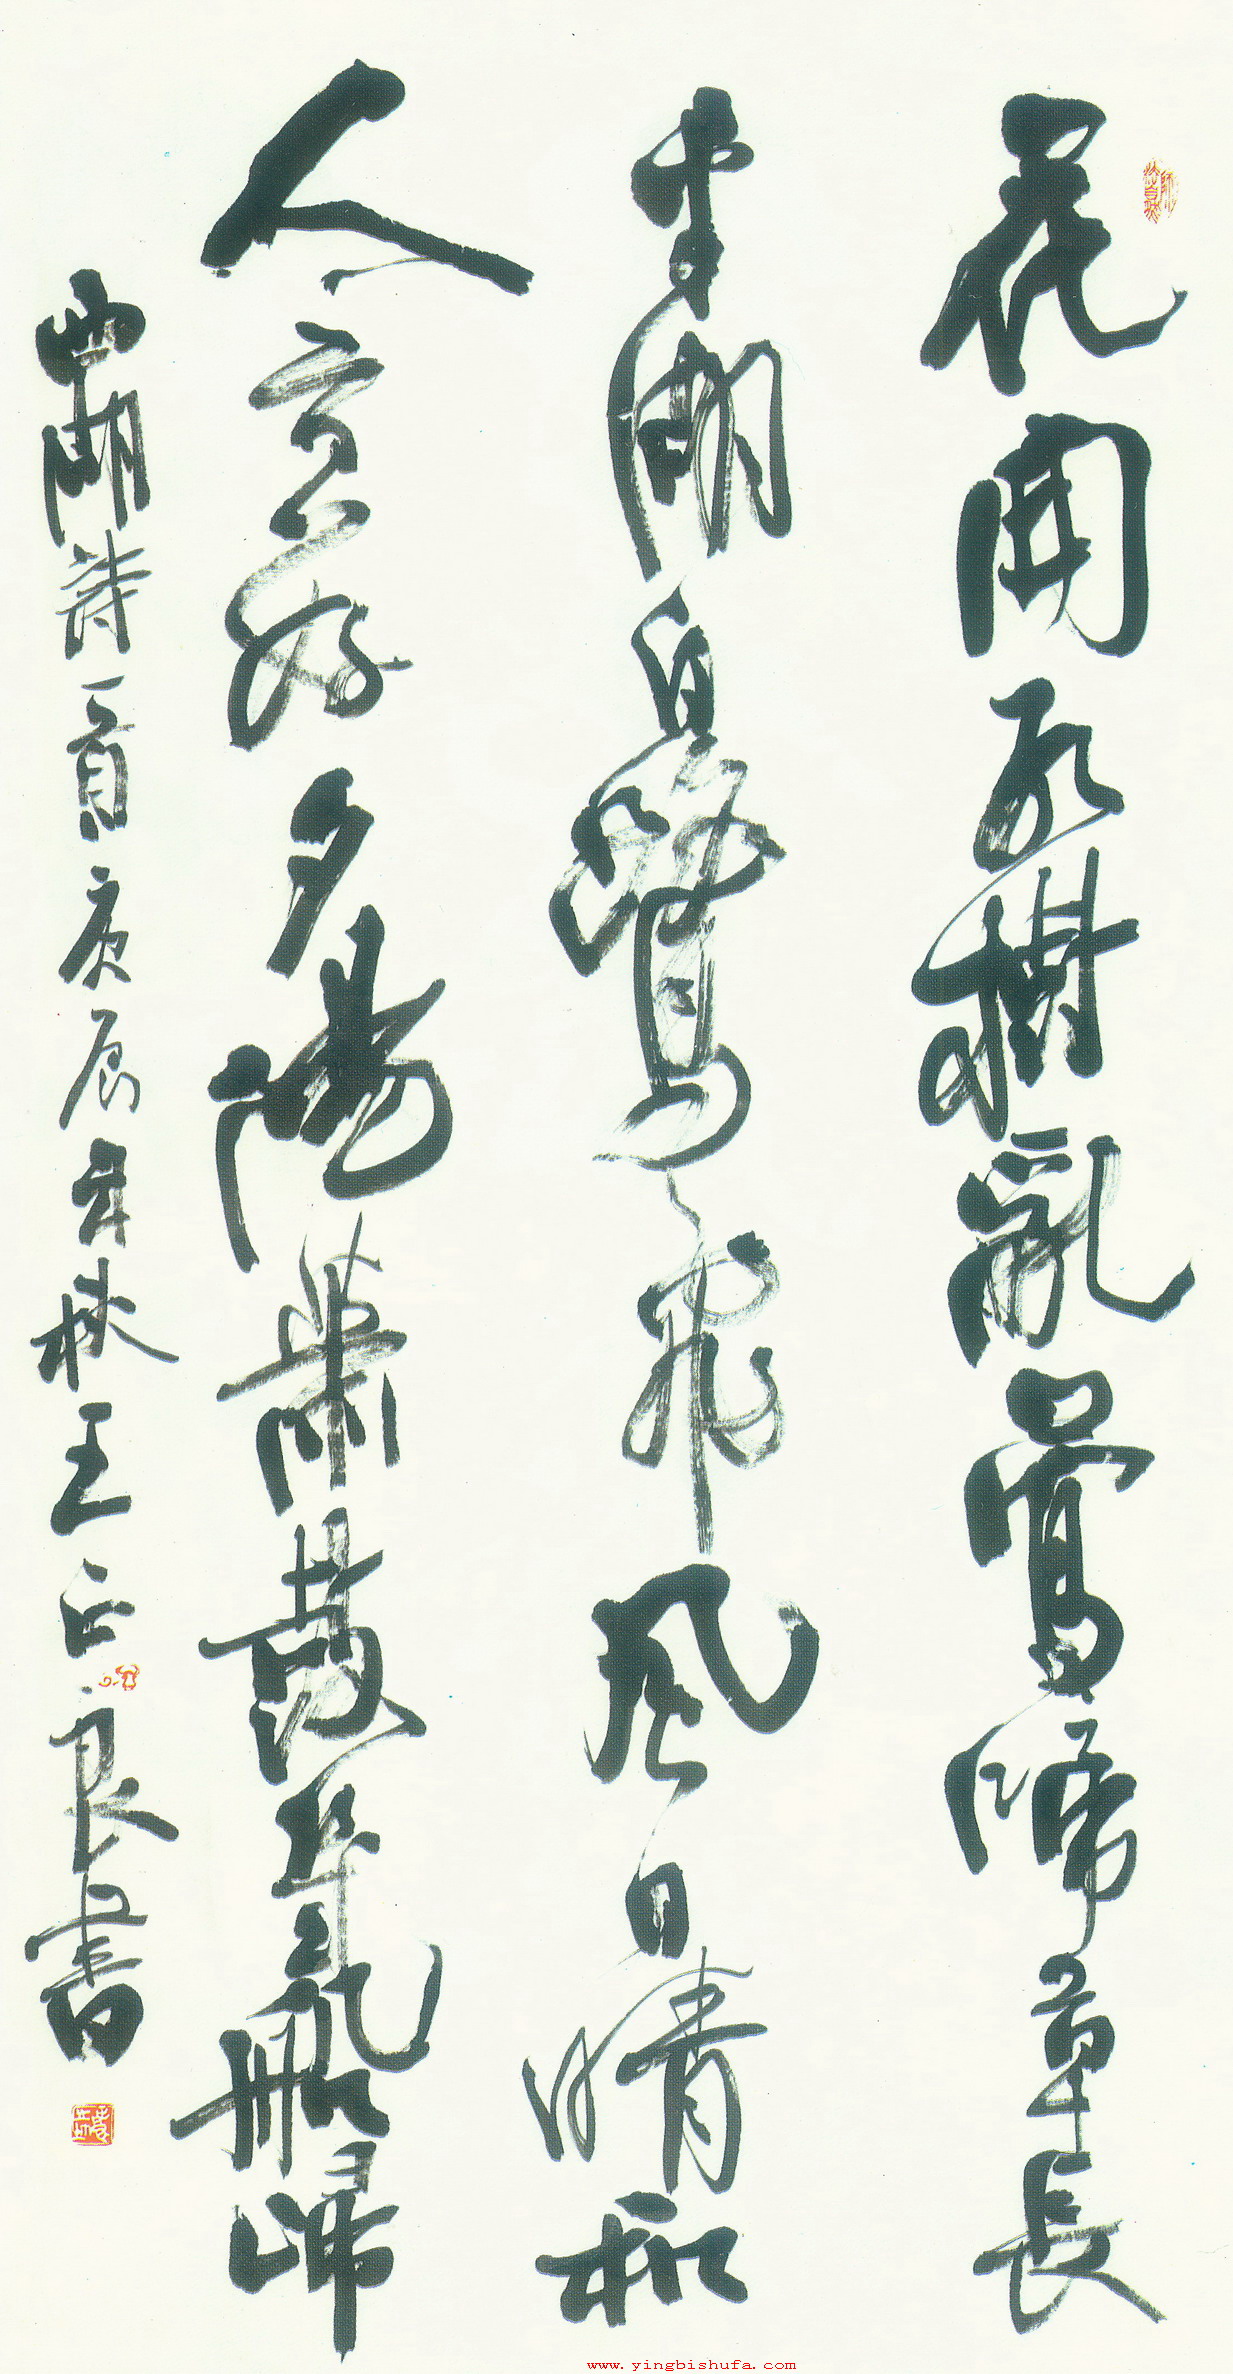 花開紅樹亂鶯啼草長
平湖白鷺飛風日晴和
人意好夕陽簫鼓幾船歸
西湖詩一首庚辰年秋王正良書
www.yingbishufa.com